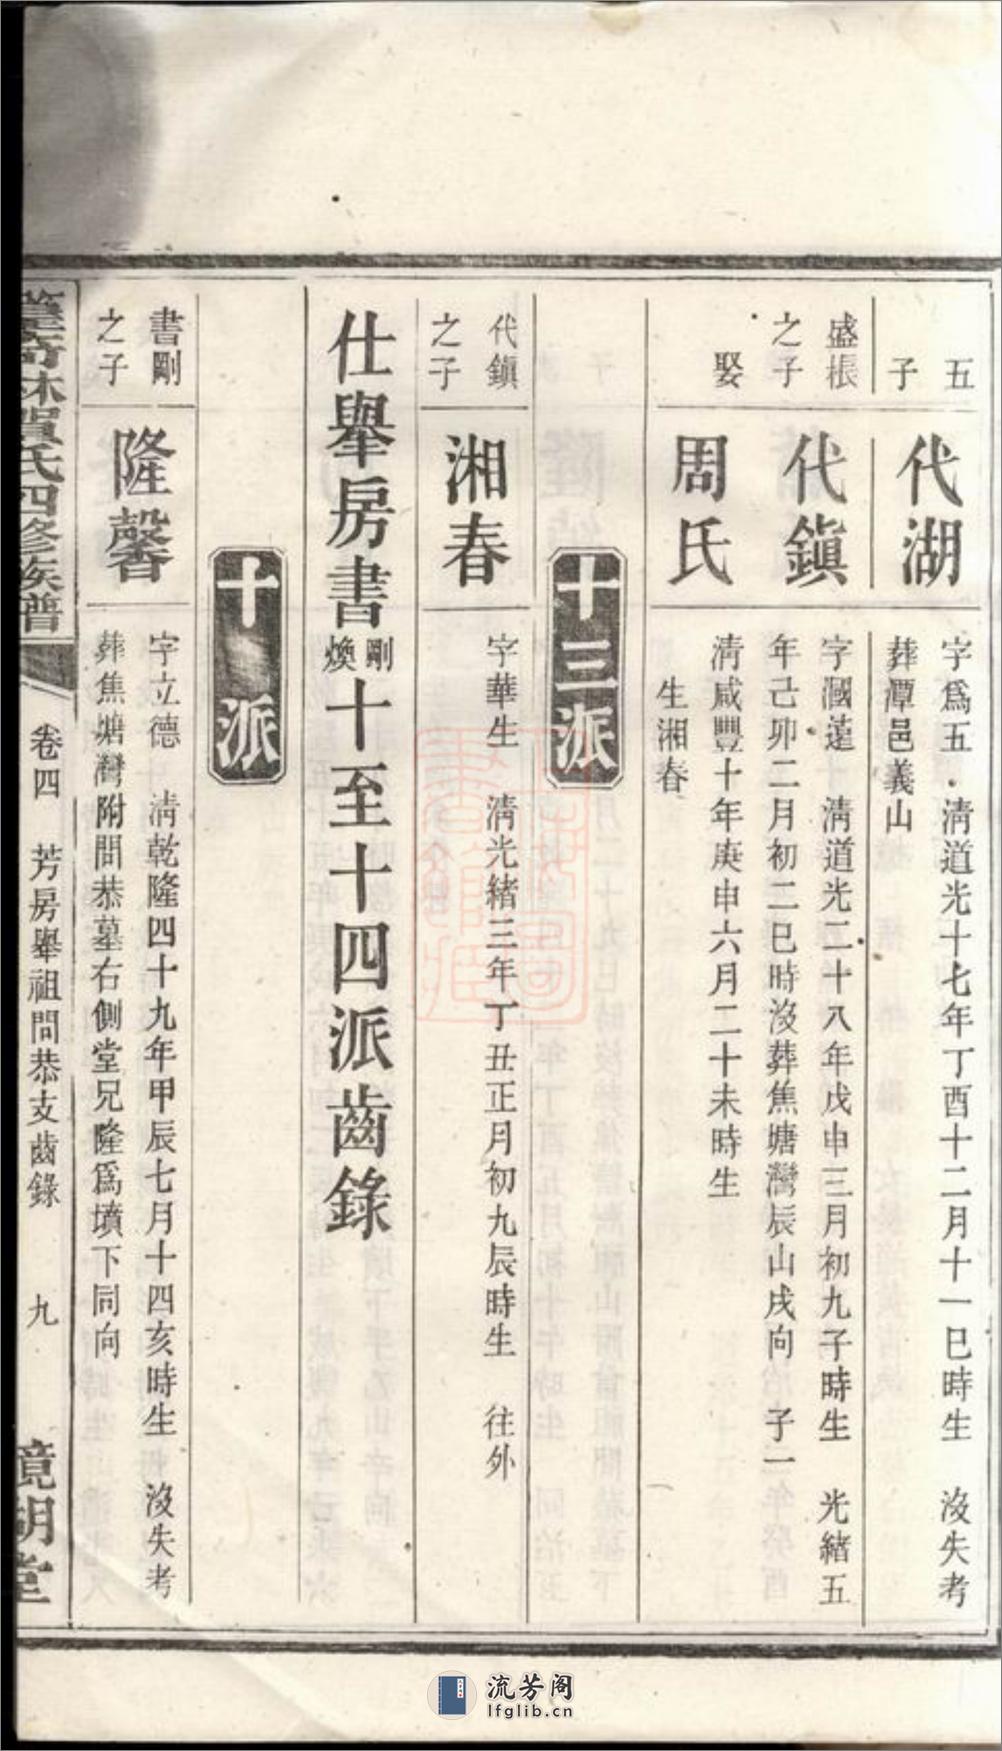 五
子
代湖
字爲五 清道光十七年丁酉十二月十一巳時生 沒失考
葬潭邑義山
盛棖
之子
代鎭
字漍蓮 清道光二十八年戊申三月初九子時生 光緒五
年己卯二月初二巳時沒葬焦塘灣辰山戌向 子一
娶
周氏
清咸豐十年庚申六月二十未時生
生湘春
十三派
代鎭
之子
湘春
字華生 清光緒三年丁丑正月初九辰時生 往外
仕舉房書剛煥十至十四派齒錄
十派
書剛
之子
隆馨
字立德 清乾隆四十九年甲辰七月十四亥時生 沒失考
葬焦塘灣附問恭墓右側堂兄隆爲墳下同向
賀氏四修族譜
卷四 芳房舉祖問恭支齒錄 九
鏡湖堂
流芳阁
lfglib.cn